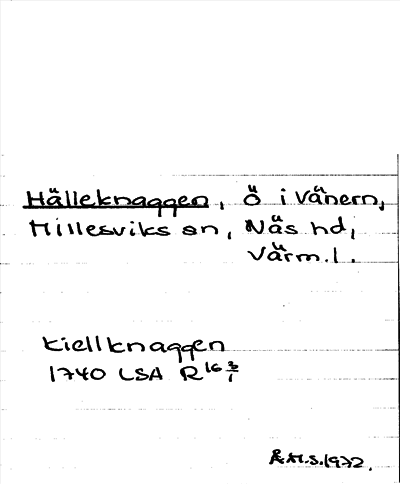 Hälleknaggen, Ö i Vänern,
Millesviks sn, Näs hd,
Värm. l.
Kiellknaggen
1740 LSA R16 3/1
Å.H.S. 1972.